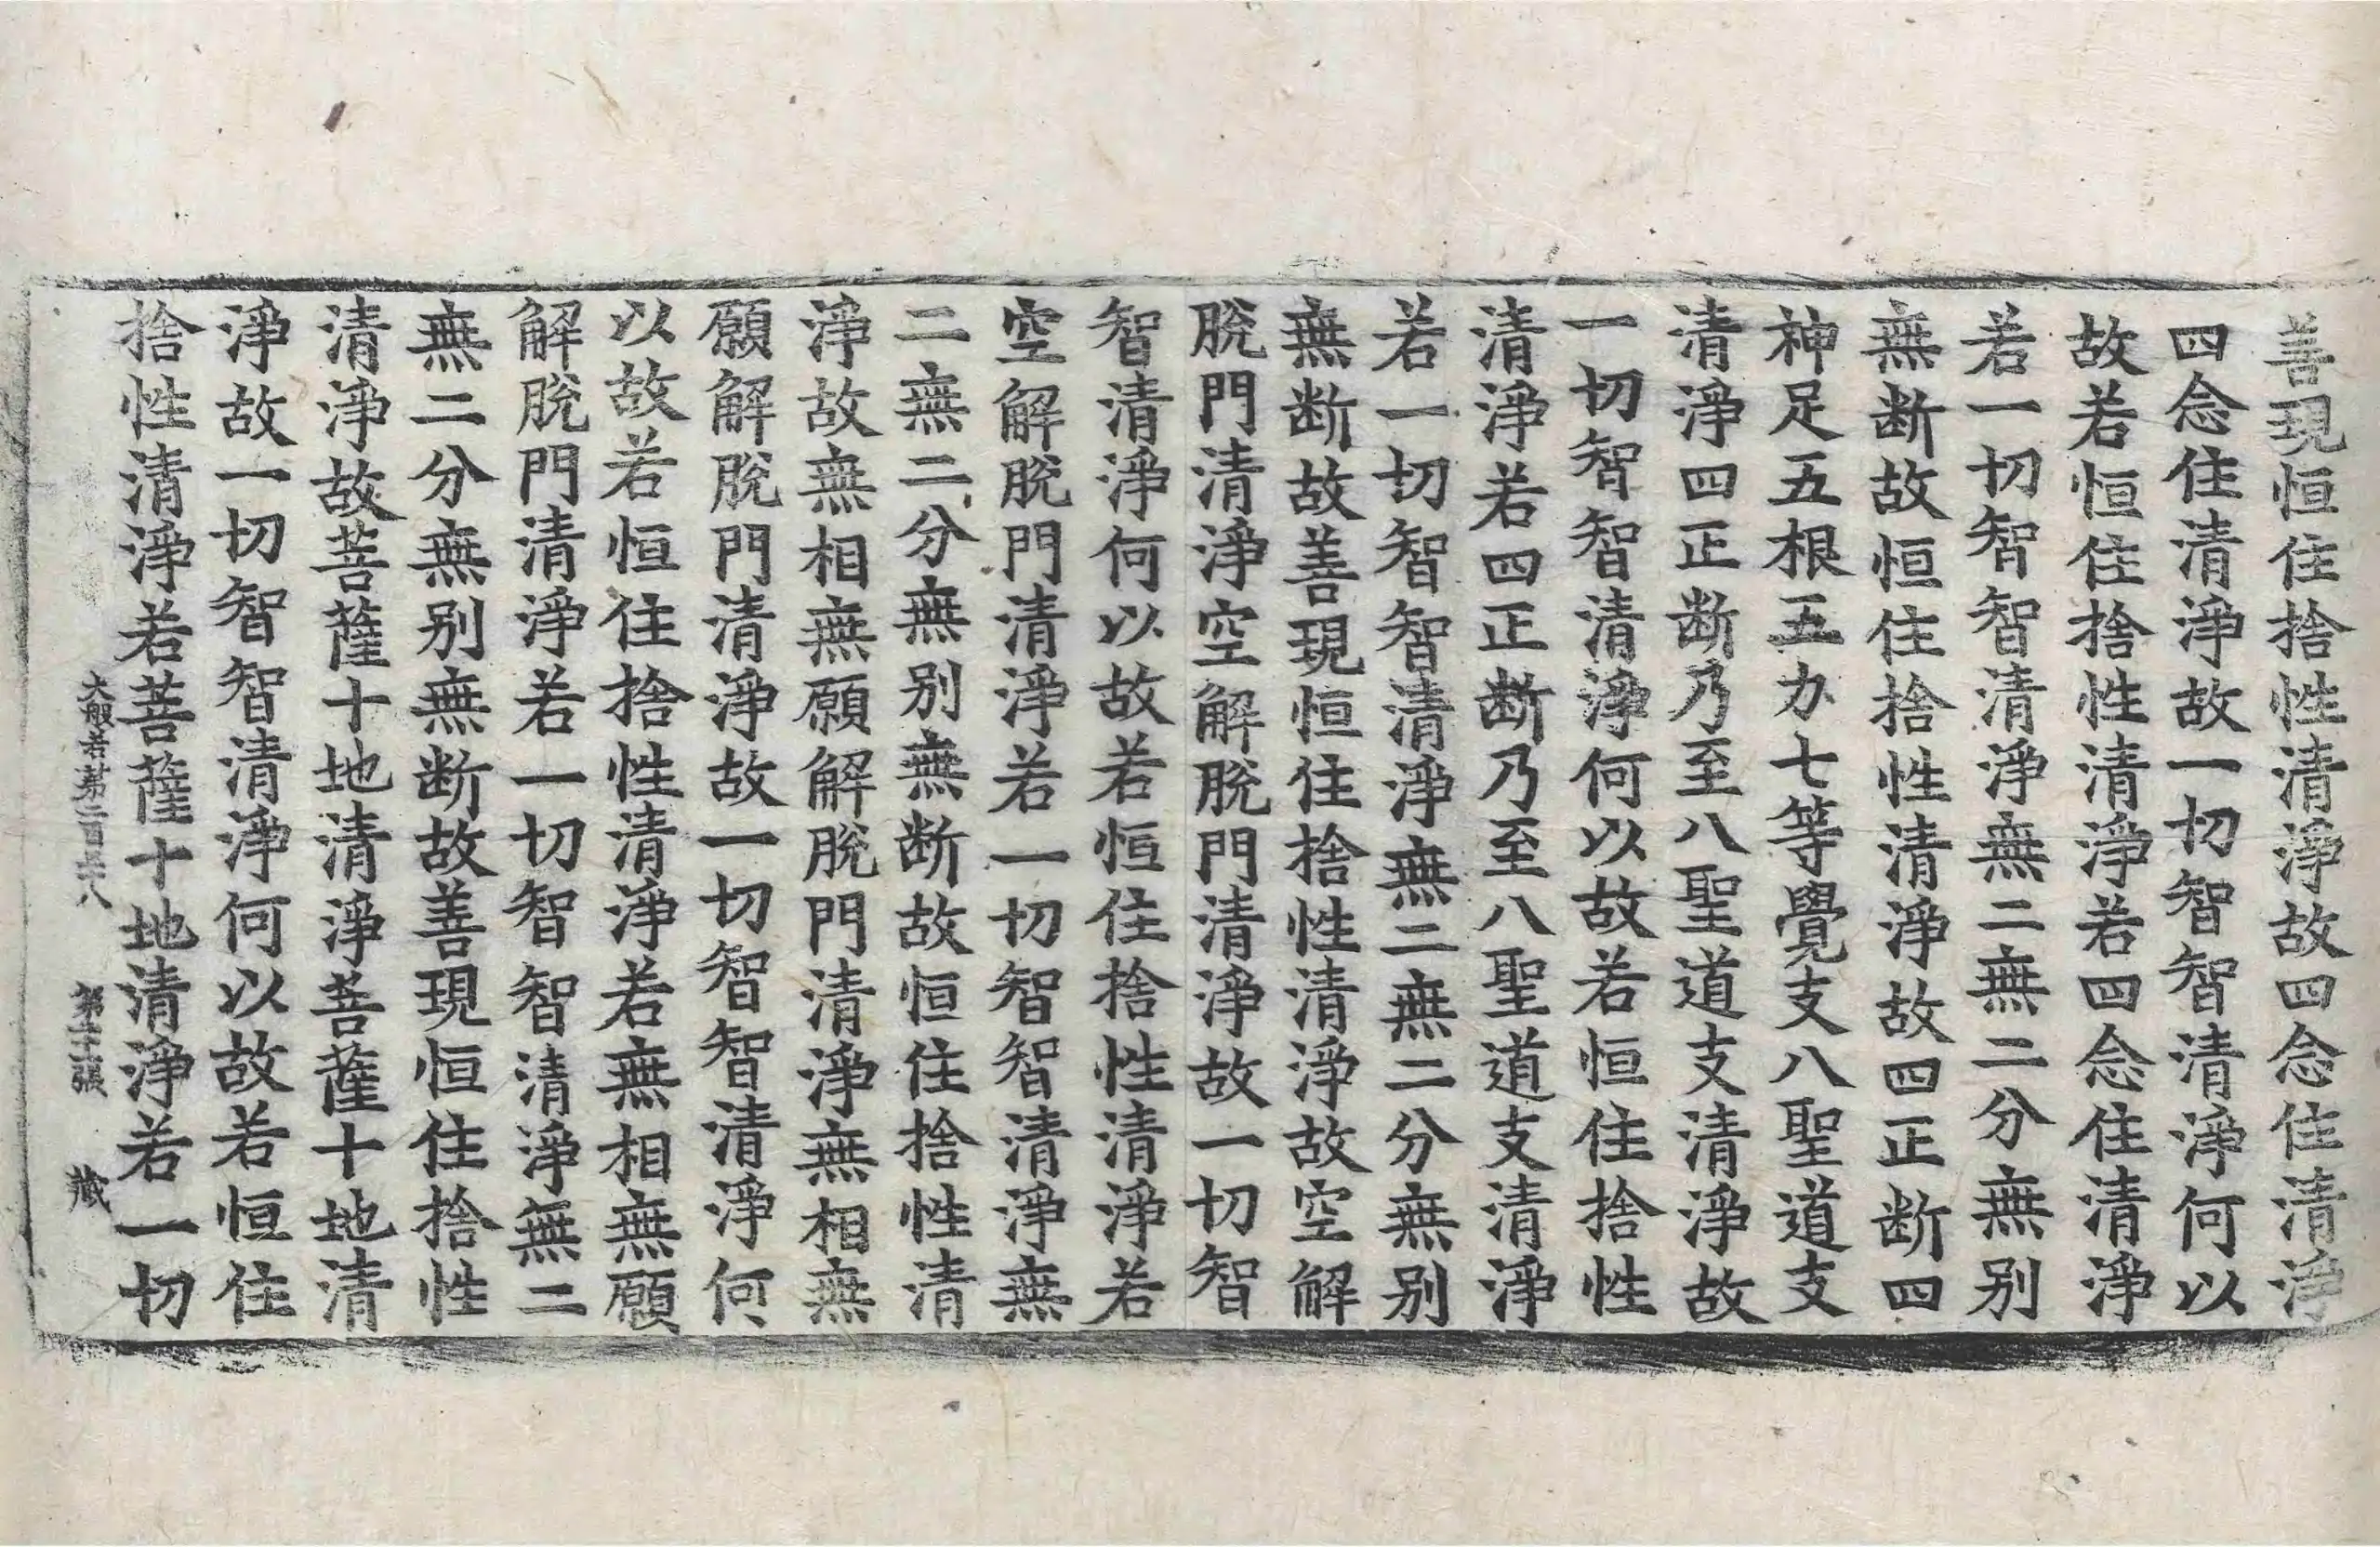 善現恒住捨性清淨故四念住清淨
四念住清淨故一切智智清淨何以
故若恒住捨性清淨若四念住清淨
若一切智智清淨無二無二分無别
無断故恒住捨性清淨故四正断四
神足五根五力七等覺支八聖道支
清淨四正断乃至八聖道支清淨故
一切智智清淨何以故若恒住捨性
清淨若四正断乃至八聖道支清淨
若一切智智清淨無二無二分無别
無断故善現恒住捨性清淨故空解
脫門清淨空解脫門清淨故一切智
智清淨何以故若恒住捨性清淨若
空解脫門清淨若一切智智清淨無
二無二分無别無断故恒住捨性清
淨故無相無願解脫門清淨無相無
願解脫門清淨故一切智智清淨何
以故若恒住捨性清淨若無相無願
解脫門清淨若一切智智清淨無二
無二分無别無断故善現恒住捨性
清淨故菩薩十地清淨菩薩十地清
淨故一切智智清淨何以故若恒住
捨性清淨若菩薩十地清淨若一切
大般若第二百 八 第 張 藏